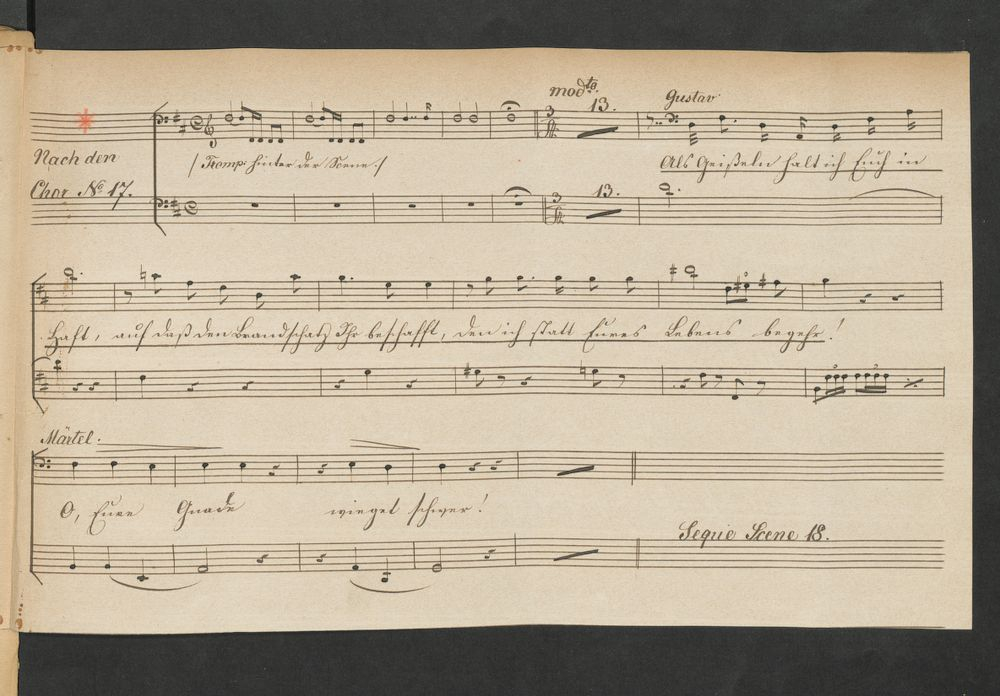 modto. 13. Gustav.
Nach den
Chor No 17.
/ Tromp: hinter der Scene. /
Als Geißeln halt ich Euch in
13.
Haft, auf daß den Brandschatz Ihr beschafft, den ich statt Eures Lebens begehr!
Märtel.
O, Eure Gnade wieget schwer!
Seque Scene 18.